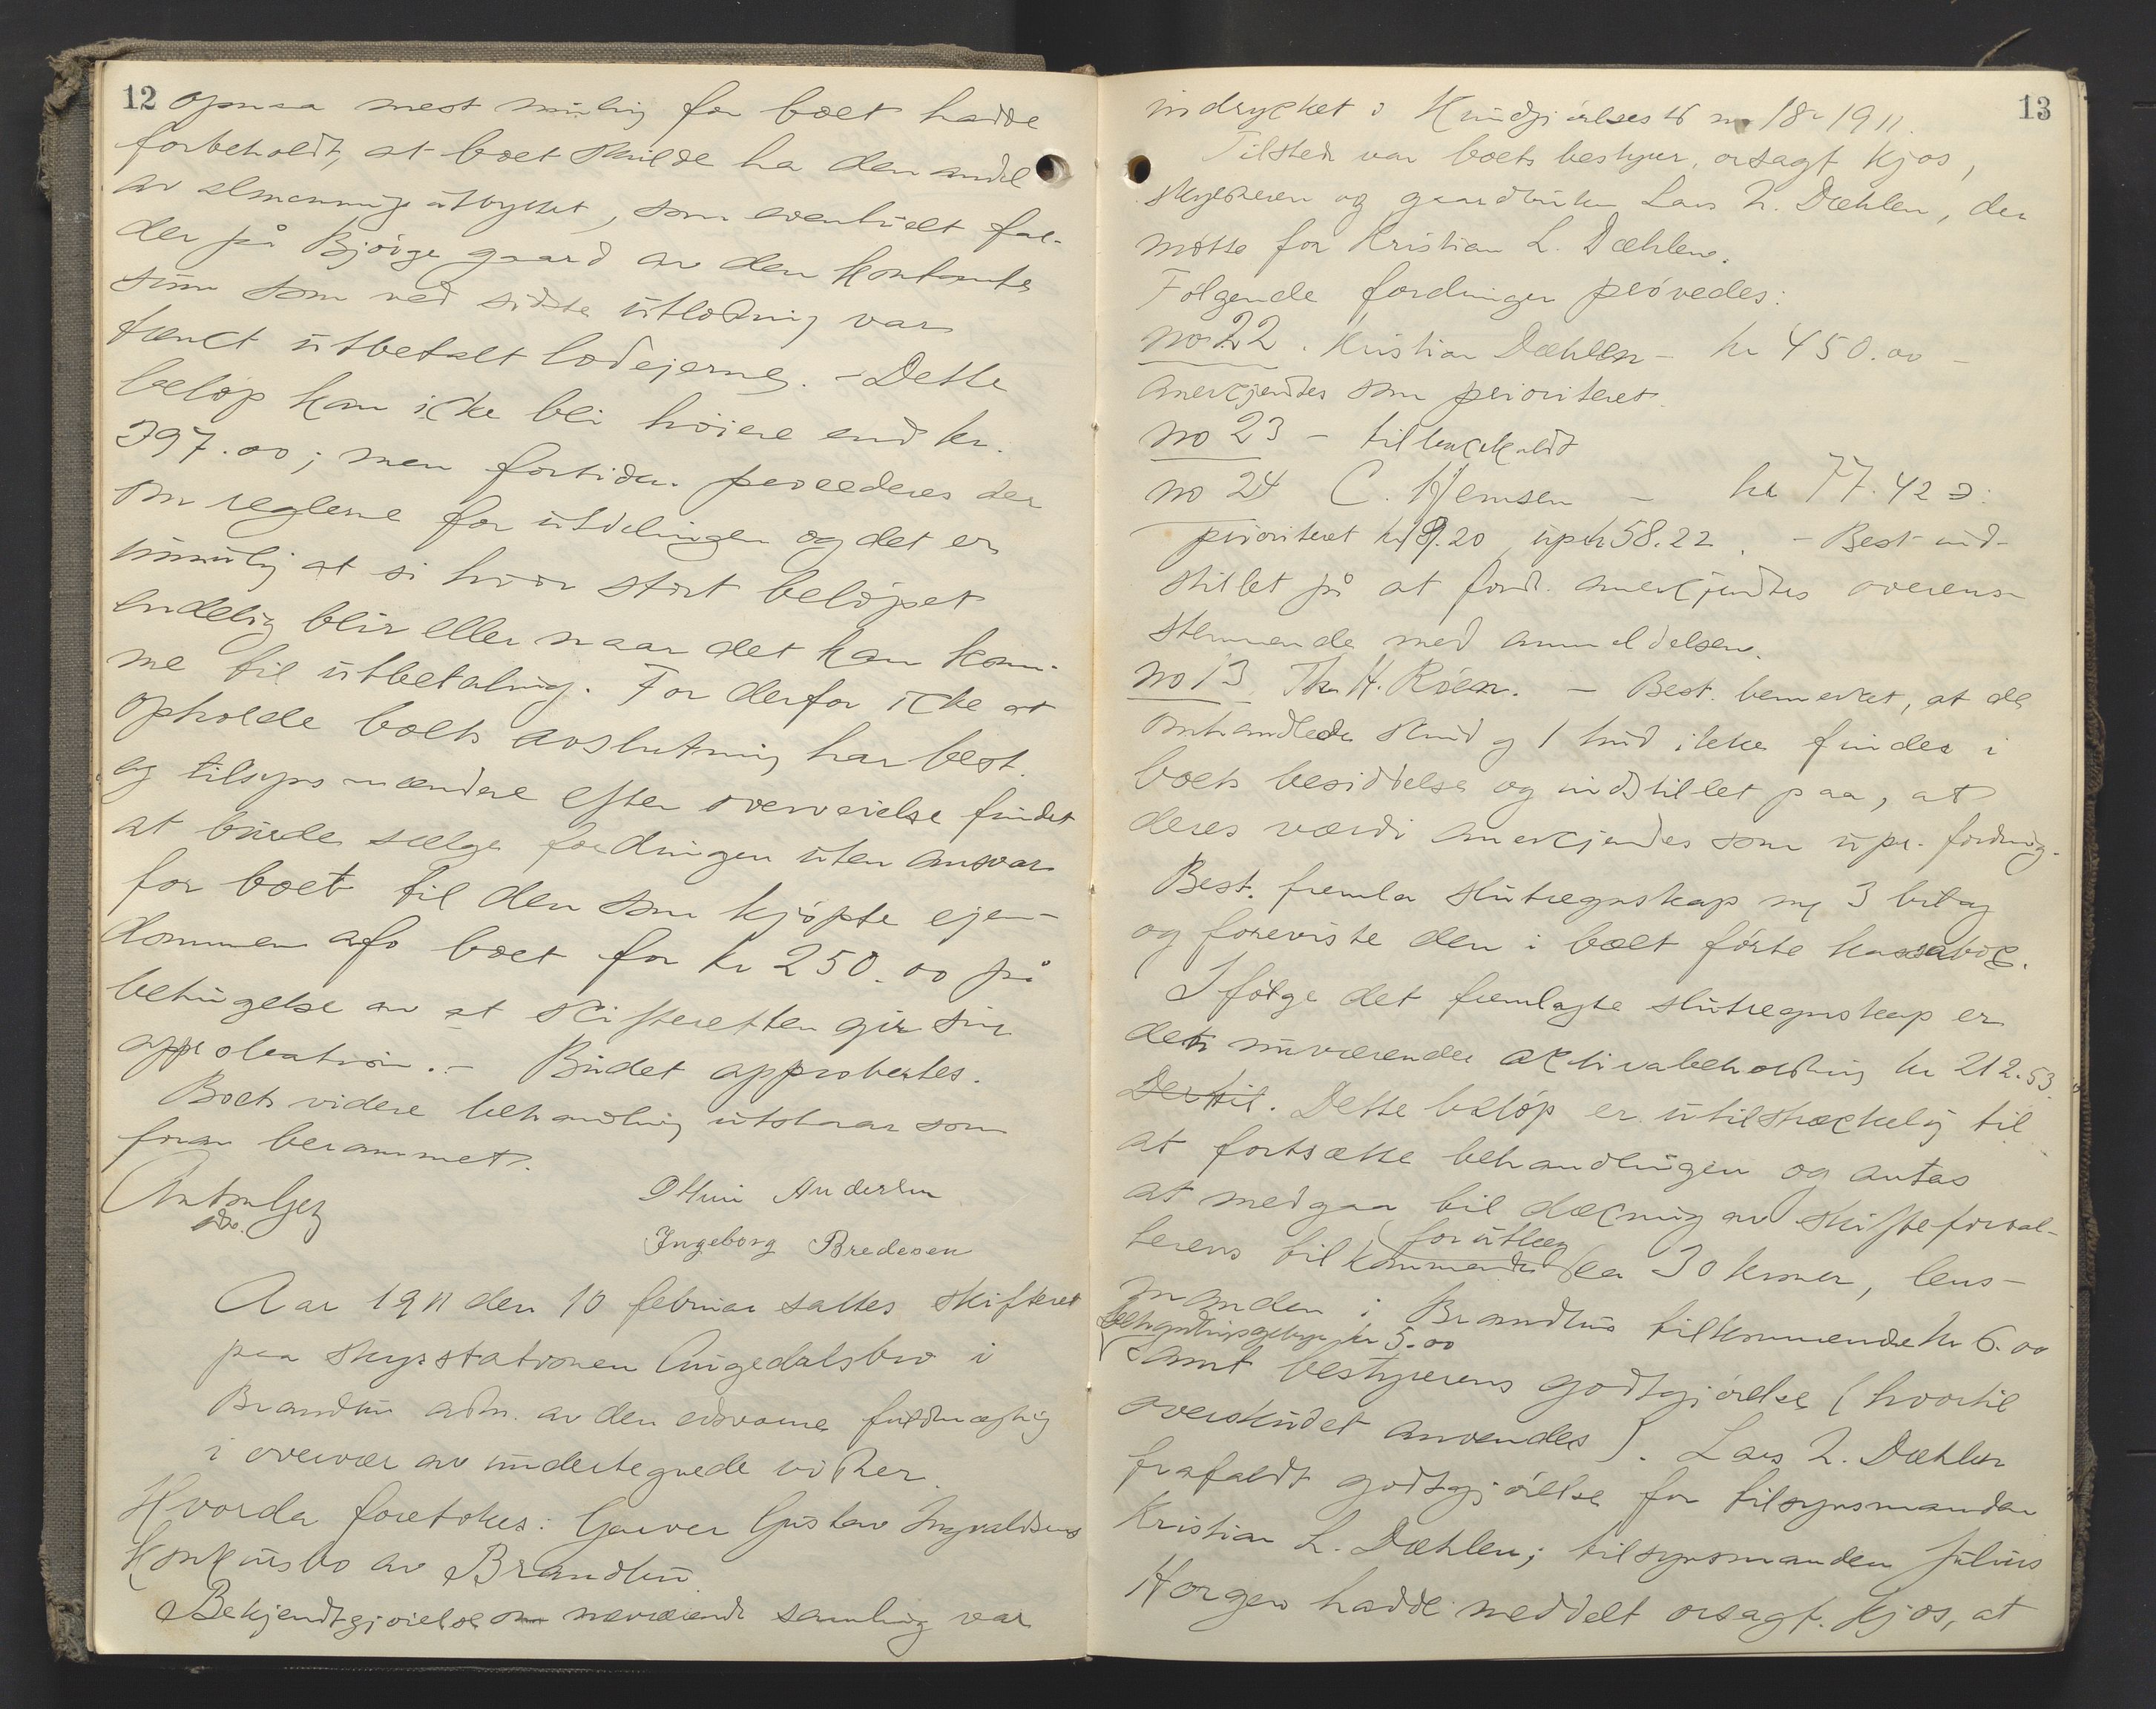 12
opnaa mest mulig for boet hadde
forbeholdt, at boet skulde ha den andel
av almenningsutbyttet, som eventuelt fal-
der på Bjørge gaard av den kontante
sum som ved sidste utlodning var
tænkt utbetalt lodejerne. - Dette
beløp kan icke bli høiere end kr.
397.00; men fortiden procederes der
om reglene for utdelingen og det er
umulig at si hvor stort beløpet
endelig blir eller naar det kan kom-
me til utbetaling. For derfor icke at
opholde boets avslutning har best.
og tilsynsmændene efter overveielse fundet
at burde sælge fordringen uten ansvar
for boet til den som kjøpte ejen-
dommen af boet for kr 250.00 på
betingelse av at skifteretten gir sin
approbation. - Budet approbertes.
Boets videre behandling utstaar som
foran berammet.
Ottmi Andersen
Ingeborg Bredesen
Aar 1911 den 10 februar sattes skifteret
paa skysstationen Augedalsbro i
Brandbu adm. av den edsvorne fuldmægtig
i overvær av undertegnede vitner.
Hvorda foretokes: Garver Gustav Ingvaldsens
konkursbo av Brandbu.
Bekjendtgjørelse om nærværende samling var
13
indrycket i Kundgjørelsest no 18 - 1911.
Tilstede var boets bestyrer, orsagf. Kjos,
skyldneren og gaardbruker Lars L. Dæhlen, der
møtte for Kristian L. Dæhlen.
Følgende fordringer prøvedes:
no 22. Kristian Dæhlen - kr 450.00 -
anerkjendtes som prioriteret.
no 23 - tilbakekaldt
no 24 C. Hjemsen - kr 77.42 ɔ:
prioriteret kr 19.20, upr kr 58.22. - Best ind-
stillet på at ford. anerkjendtes overens-
stemmende med anmeldelsen.
no 13 Th. H. Røen. - Best. bemerket, at de
omhandlede skind og 1 hud ikke findes i
boets besiddelse og indstillet paa, at
deres værdi anerkjendes som upr. fordring.
Best. fremla slutregnskap m/ 3 bilag
og foreviste den i boet førte kassabog.
Ifølge det fremlagte slutregnskap er
dets nuværende aktivabeholdning kr 212.53.
Dertil. Dette beløp er utilstrækkelig til
at fortsætte behandlingen og antas
at medgaa til dækning av skifteforval-
terens tilkommende for utlæg ca 30 kroner, lens-
manden i Brandbu tilkommende kr 6.00
behandlingsgebyr kr 5.00
samt bestyrerens godtgjørelse (hvortil
overskudet anvendes). Lars L. Dæhlen
frafaldt godtgjørelse for tilsynsmanden
Kristian L. Dæhlen; tilsynsmanden Julius
Horgen hadde meddelt orsagf. Kjos, at